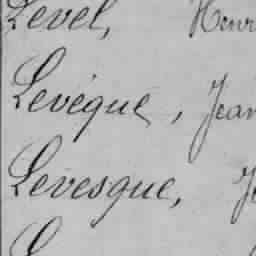 Level, Henri
Levêque, Jean
Levesque,